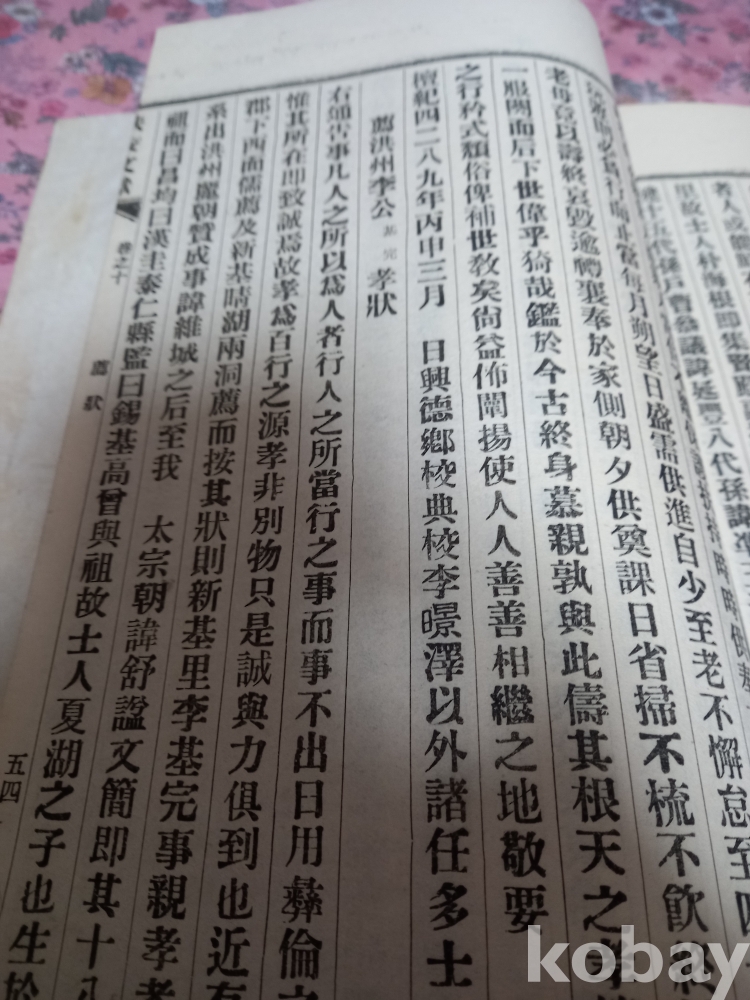 者人
里故士人朴海根即集賢
十五代孫戶曹參議諱延豊八代孫諱
當每月朔望日盛需供進自少至老不懈怠至四
老母竟以壽終哀毀逾禮襄奉於家側朝夕供奠課日省掃不梳不飮終
一服闋而后下世偉乎猗哉鑑於今古終身慕親孰與此儔其根天之孝
之行矜式頹俗俾補世敎矣尙益佈闡揚使人人善善相繼之地敬要
檀紀四二八九年丙申三月 日興德鄕校典校李暻澤以外諸任多士
薦洪州李公基完孝狀
右通告事凡人之所以爲人者行人之所當行之事而事不出日用彛倫之
惟其所在即致誠焉故孝爲百行之源孝非別物只是誠與力俱到也近有
郡下西面儒薦及新基晴湖兩洞薦而按其狀則新基里李基完事親孝者
系出洪州麗朝贊成事諱維城之后至我 太宗朝諱舒諡文簡即其十八
祖而曰昌均曰漢圭泰仁縣監曰錫基高曾與祖故士人夏湖之子也生於
卷之十
薦狀
五四
kobay